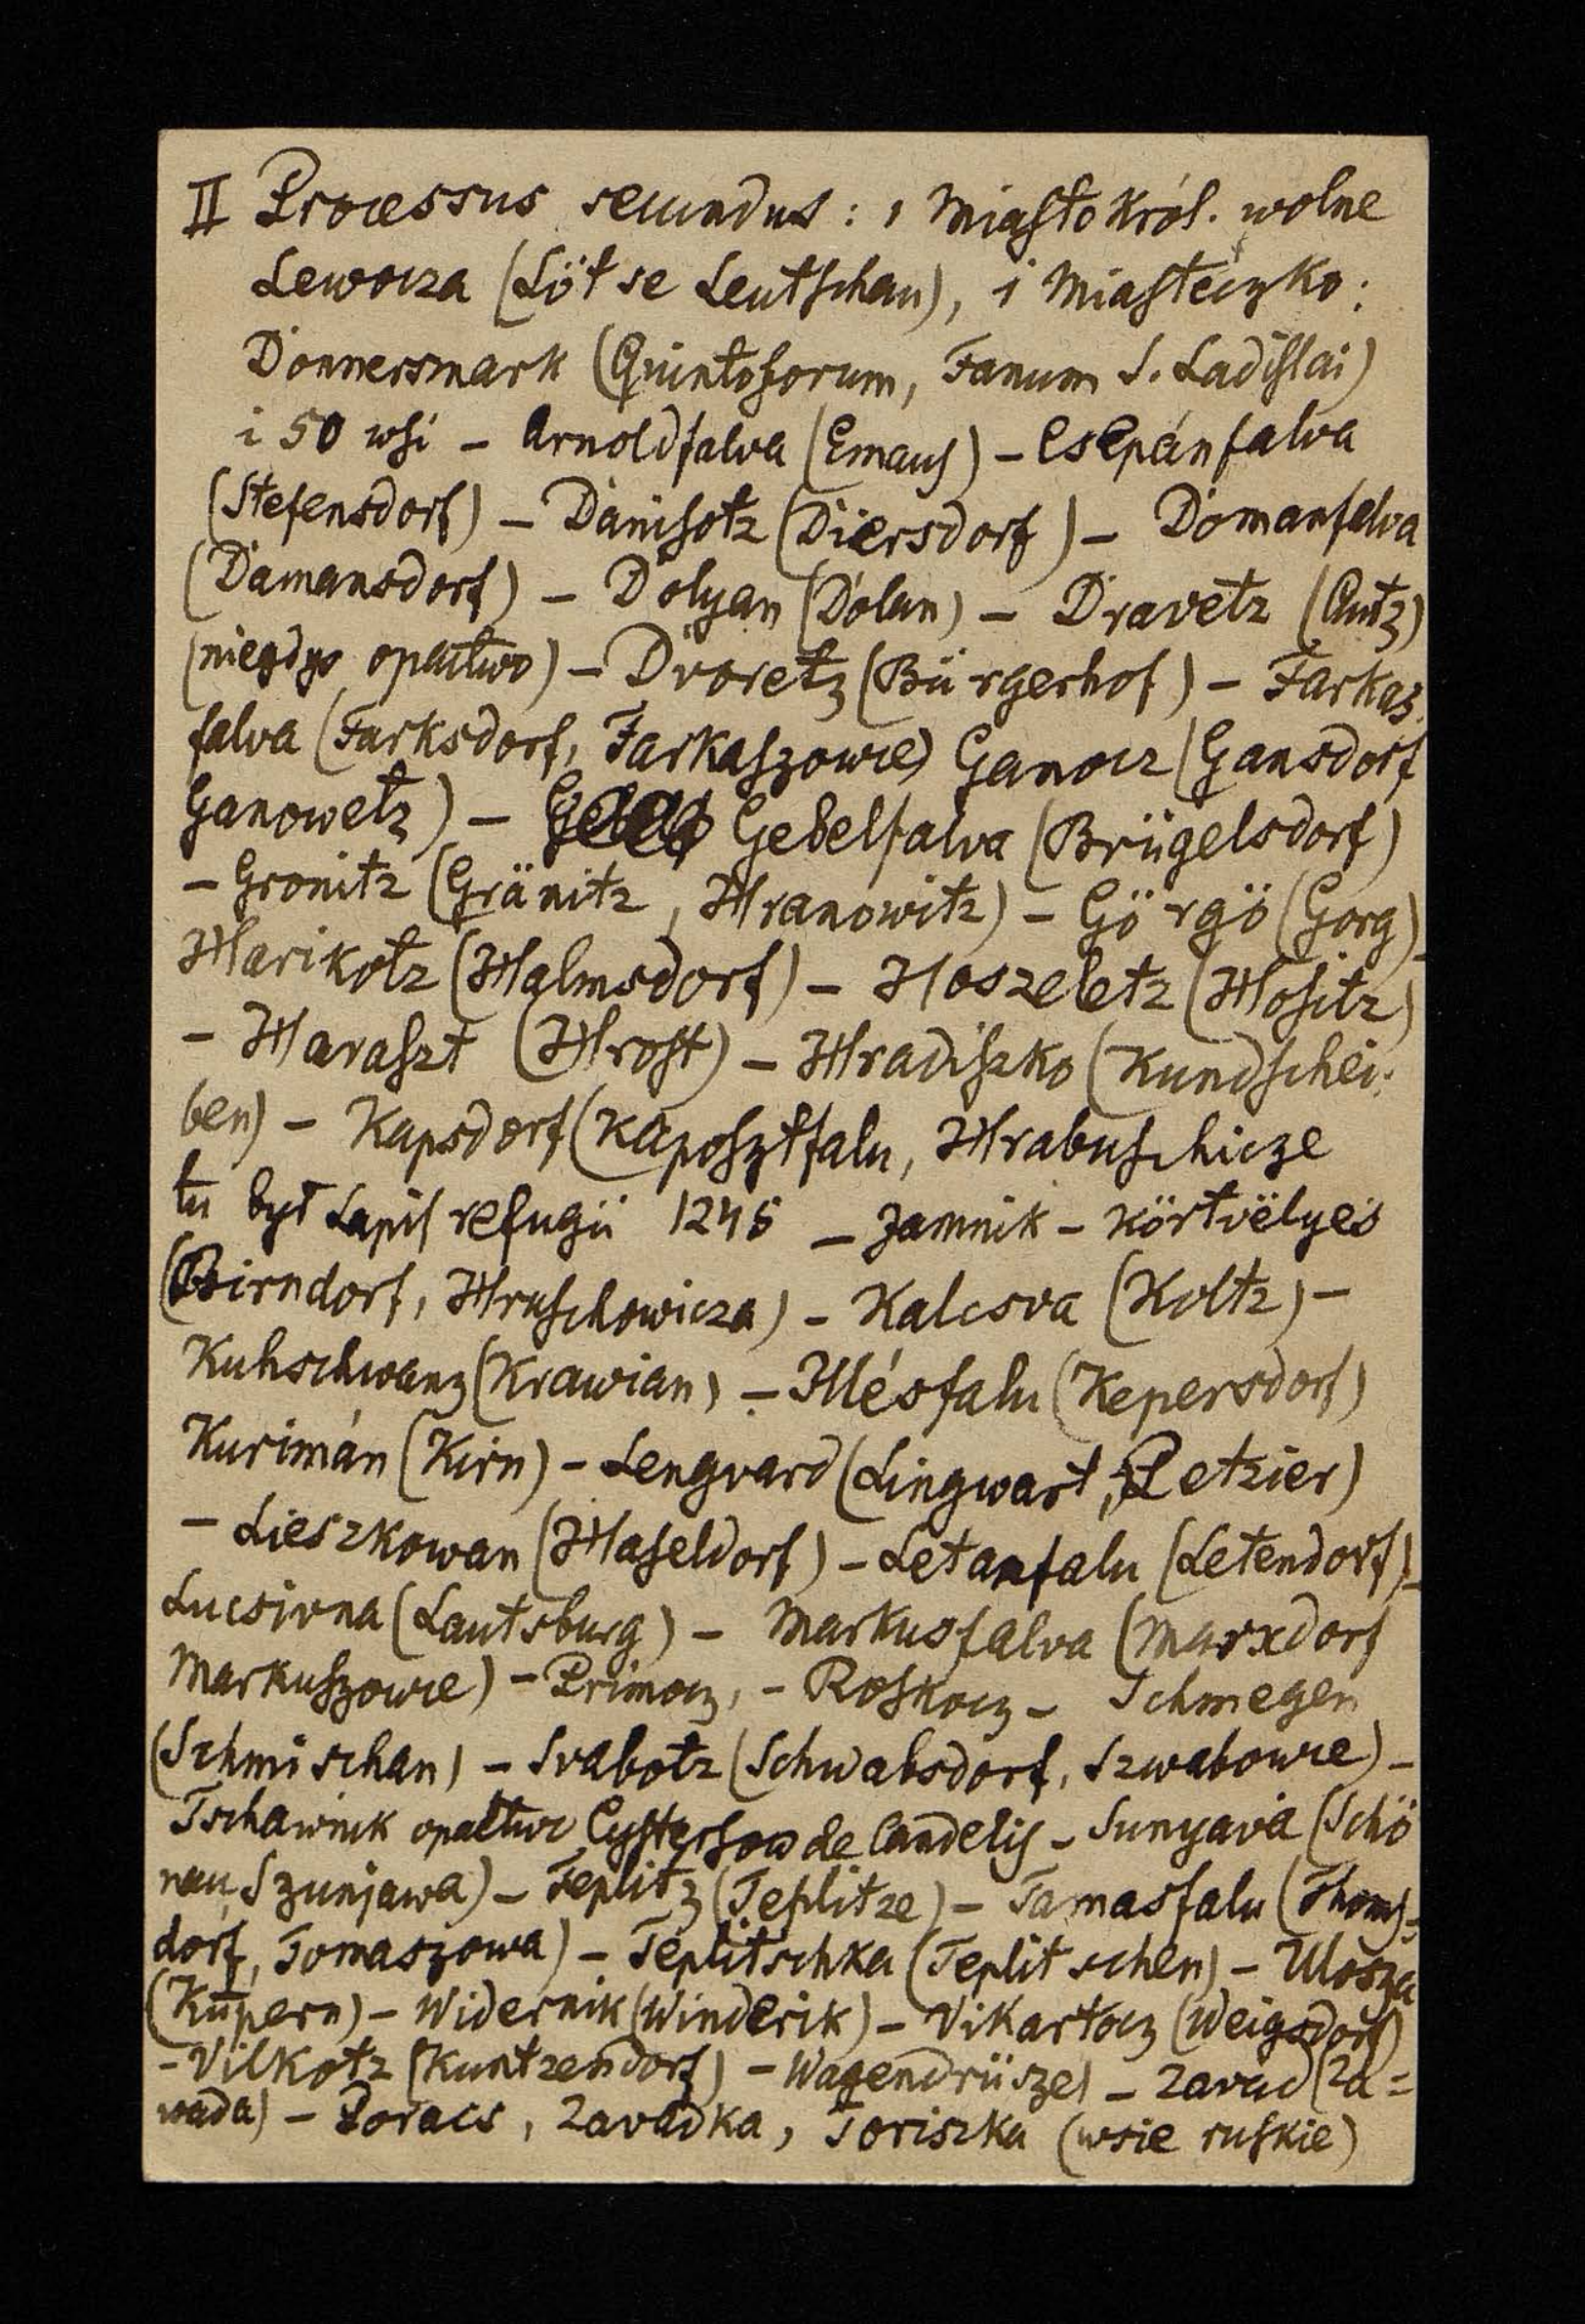 II Processus secundus : 1 Miasto król. wolne
Lewocza (Lötse Leutschau), 1 Miasteczko :
Donnersmark (Quintoforum, Fanum S. Ladislai)
i 50 wsi – Arnoldfalva (Emaus) – Csepánfalva
(Stefensdorf) – Danisotz (Diersdorf) – Domanfalva
(Damansdorf) – Dolyan (Dolan) – Dravetz
(niegdyś opactwo) – Dvoretz (Bürgerhof) – Farkas-
falva (Farksdorf, Farkaszowce) Ganocz (Gansdorf
Ganowetz) – Gebelfalva (Brügelsdorf)
– Gronitz (Gränitz, Hranowitz) – Görgö (Gorg) –
Harikotz (Halmsdorf) – Hoszeletz (Hositz)
– Haraszt (Hrost) – Hradiszko (Kundschei-
ben) – Kapsdorf (Káposztfalu, Hrabuschicze
tu był Lapis refugii 1245 – Jamnik – Körtvélyes
(Birndorf, Hruschowicza) – Kalcsva (Koltz) –
Kuhschwanz (Krawian) – Illésfalu (Kepersdorf)
Kurimán (Kirn) – Lengvard (Lingwart, Letzier)
– Lieszkowan (Haseldorf) – Letanfalu (Letendorf) –
Lucsivna (Lautsburg) – Markusfalva (Marxdorf
Markuszowce) – Primocz, – Roskocz – Schmegen
(Schmischan) – Svabotz (Schwabsdorf, Szwabowce) –
Tschawnik opactwo Cystersów de Candelis – Sunyava (Schö
nau, Szunjawa) – Teplitz (Teplitze) – Tamasfalu (Thoms-
dorf, Tomaszowa) – Teplitschka (Teplitschen) – Ulosza
(Küpern) – Widernik (Winderik) – Vikartocz (Weigsdorf)
– Vilkotz (Kuntzendorf) – Wagendrüszel – Zavad (Za=
wada) – Poracs, Zavadka, Toriszka (wsie ruskie)